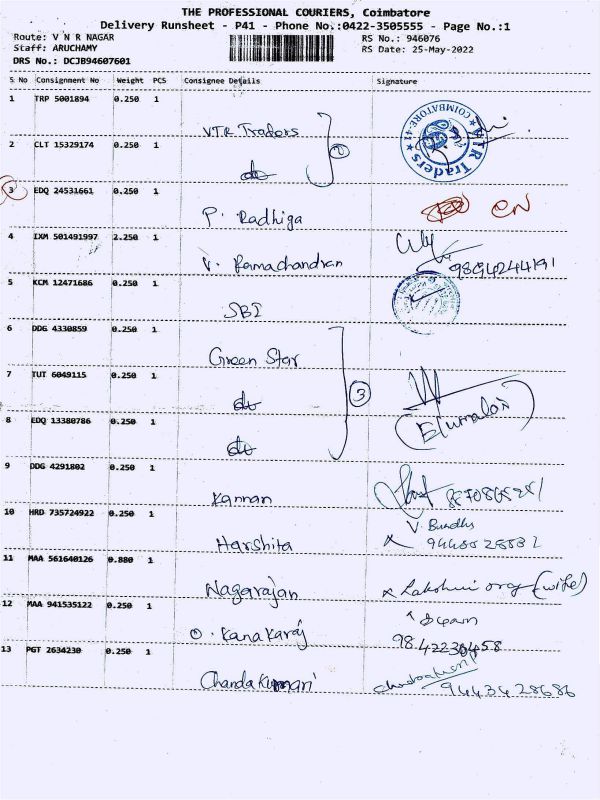 THE PROFESSIONAL COURIERS, Coimbatore
Delivery Runsheet - P41 - Phone No.:0422-3505555 - Page No.:1
Route: V N R NAGAR RS No.: 946076
Staff: ARUCHAMY RS Date: 25-May-2022
DRS No.: DCJB94607601
S No Consignment No Weight PCS Consignee Details Signature
1 TRP 5001894 0.250 1
VTR Traders COIMBATORE-41 VTR Traders
2 CLT 15329174 0.250 1 2
do
3 EDQ 24531661 0.250 1
P. Radhiga CN
4 IXM 501491997 2.250 1
V. Ramachandran 9894244191
5 KCM 12471686 0.250 1
SBI
6 DDG 4330859 0.250 1
Green Star
7 TUT 6049115 0.250 1 3
do
8 EDQ 13380786 0.250 1 (Elumalai)
do
9 DDG 4291802 0.250 1
Kannan
10 HRD 735724922 0.250 1
Harshita
11 MAA 561640126 0.880 1
Nagarajan Lakshmi (wife)
12 MAA 941535122 0.250 1
O. Kanakaraj
13 PGT 2634230 0.250 1
Chanda Kumari 9443428686